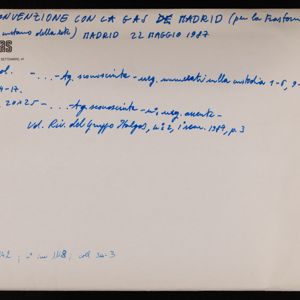 CONVENZIONE CON LA GAS DE MADRID (per la trasfor
metano della rete) MADRID 22 MAGGIO 1987
as
SETTEMBRE, 41
ol. - ... - Ag. sconosciuta - neg. numerati sulla custodia 1-5, 9-
4-17.
, 20x25 - ... - Ag. sconosciuta - n°, neg. assente -
Vd. Riv. del Gruppo Italgas, n° 2, 1° sem. 1987, p. 3